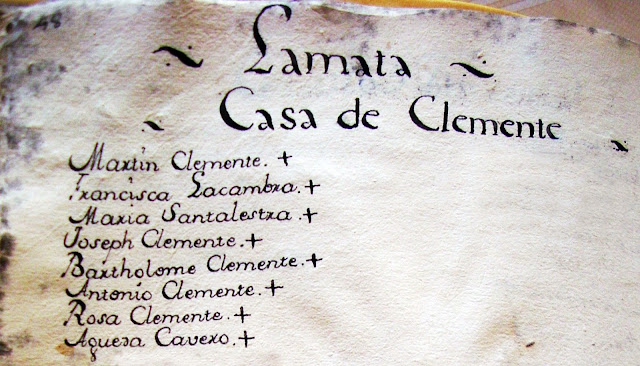 48
~ Lamata ~
~ Casa de Clemente ~
Martin Clemente. +
Francisca Lacambra. +
Maria Santalestra. +
Joseph Clemente. +
Bartholome Clemente. +
Antonio Clemente. +
Rosa Clemente. +
Agueda Cavero. +